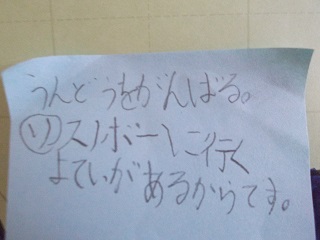 うんどうをがんばる。
リスノボーに行く
よていがあるからです。